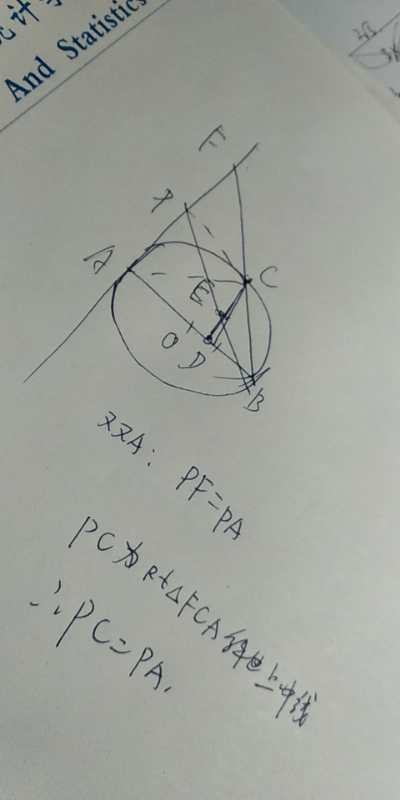 统计
And Statistics
F
P
A
C
E
O
D
B
又又A: PF=PA
PC为Rt△FCA斜边上中线
∴PC=PA.